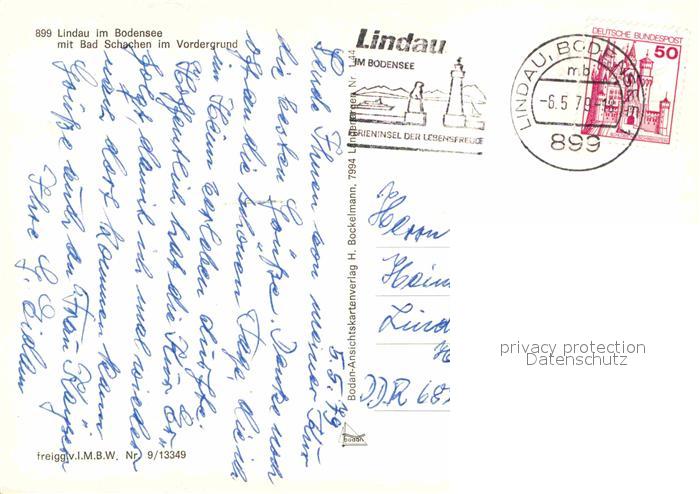 899 Lindau im Bodensee
mit Bad Schachen im Vordergrund
5.5.79
Sende Ihnen von meiner Kur
die besten Grüße. Denke noch
oft an die schönen Tage, die ich
im Heim erleben durfte.
Hoffentlich hat die Kur Er-
folg, damit ich mal wieder
nach dort kommen kann
Grüße auch an Frau Kayser
Ihre G.
freigg.v.I.M.B.W. Nr. 9/13349
Bodan-Ansichtskartenverlag H. Bockelmann, 7994 Langenargen Nr.
bodan
Lindau
IM BODENSEE
FERIENINSEL DER LEBENSFREUDE
LINDAU, BODENSEE 1
mb
-6.5.79-18
899
DEUTSCHE BUNDESPOST
50
Herrn
Heim
Lind
DDR 68
privacy protection
Datenschutz